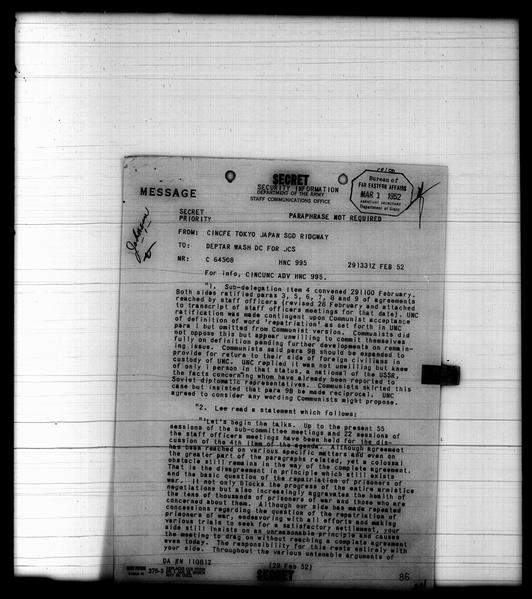 SECRET
SECURITY INFORMATION
DEPARTMENT OF THE ARMY
STAFF COMMUNICATIONS OFFICE
MESSAGE
Bureau of
FAR EASTERN AFFAIRS
MAR 3 1952
Department of State
Johnson
SECRET
PRIORITY
PARAPHRASE NOT REQUIRED
FROM: CINCFE TOKYO JAPAN SGD RIDGWAY
TO: DEPTAR WASH DC FOR JCS
NR: C 64568 HNC 995 291331Z FEB 52
For info, CINCUNC ADV HNC 995.
"1. Sub-delegation item 4 convened 291100 February.
Both sides ratified paras 3, 5, 6, 7, 8 and 9 of agreements
reached by staff officers (revised 28 February and attached
to transcript of staff officers meetings for that date). UNC
ratification was made contingent upon Communist acceptance
of definition of word 'repatriation' as set forth in UNC
para 1 but omitted from Communist version. Communists did
not oppose this but appear unwilling to commit themselves
fully on definition pending further developments on remain-
ing issue. Communists said para 9B should be expanded to
provide for return to their side of foreign civilians in
custody of UNC. UNC replied it was not unwilling but knew
of only 1 person in that status, a national of the USSR,
the facts concerning whom have already been reported to
Soviet diplomatic representatives. Communists skirted this
case but insisted that para 9B be made reciprocal. UNC
agreed to consider any wording Communists might propose.
"2. Lee read a statement which follows:
"'Let's begin the talks. Up to the present 55
sessions of the sub-committee meetings and 22 sessions of
the staff officers meetings have been held for the dis-
cussion of the 4th item of the agenda. Although agreement
has been reached on various specific matters and even on
the greater part of the paragraphs related, yet a colossal
obstacle still remains in the way of the complete agreement.
That is the disagreement in principle which still exists
and the basic question of the repatriation of prisoners of
war. It not only blocks the progress of the entire armistice
negotiations but also increasingly aggravates the health of
the tens of thousands of prisoners of war and those who are
concerned about them. Although our side has made repeated
concessions regarding the question of the repatriation of
prisoners of war, endeavoring with all efforts and making
various trials to seek for a satisfactory settlement, your
side still insists on an unreasonable principle and causes
the meeting to drag on without reaching a complete agreement
even today. The responsibility for this rests entirely with
your side. Throughout the various untenable arguments of
DA IN 110812
(29 Feb 52)
375-3
SECRET
86